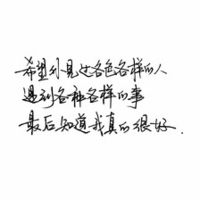 希望外见过各色各样的人
遇到各种各样的事
最后知道我真的很好.